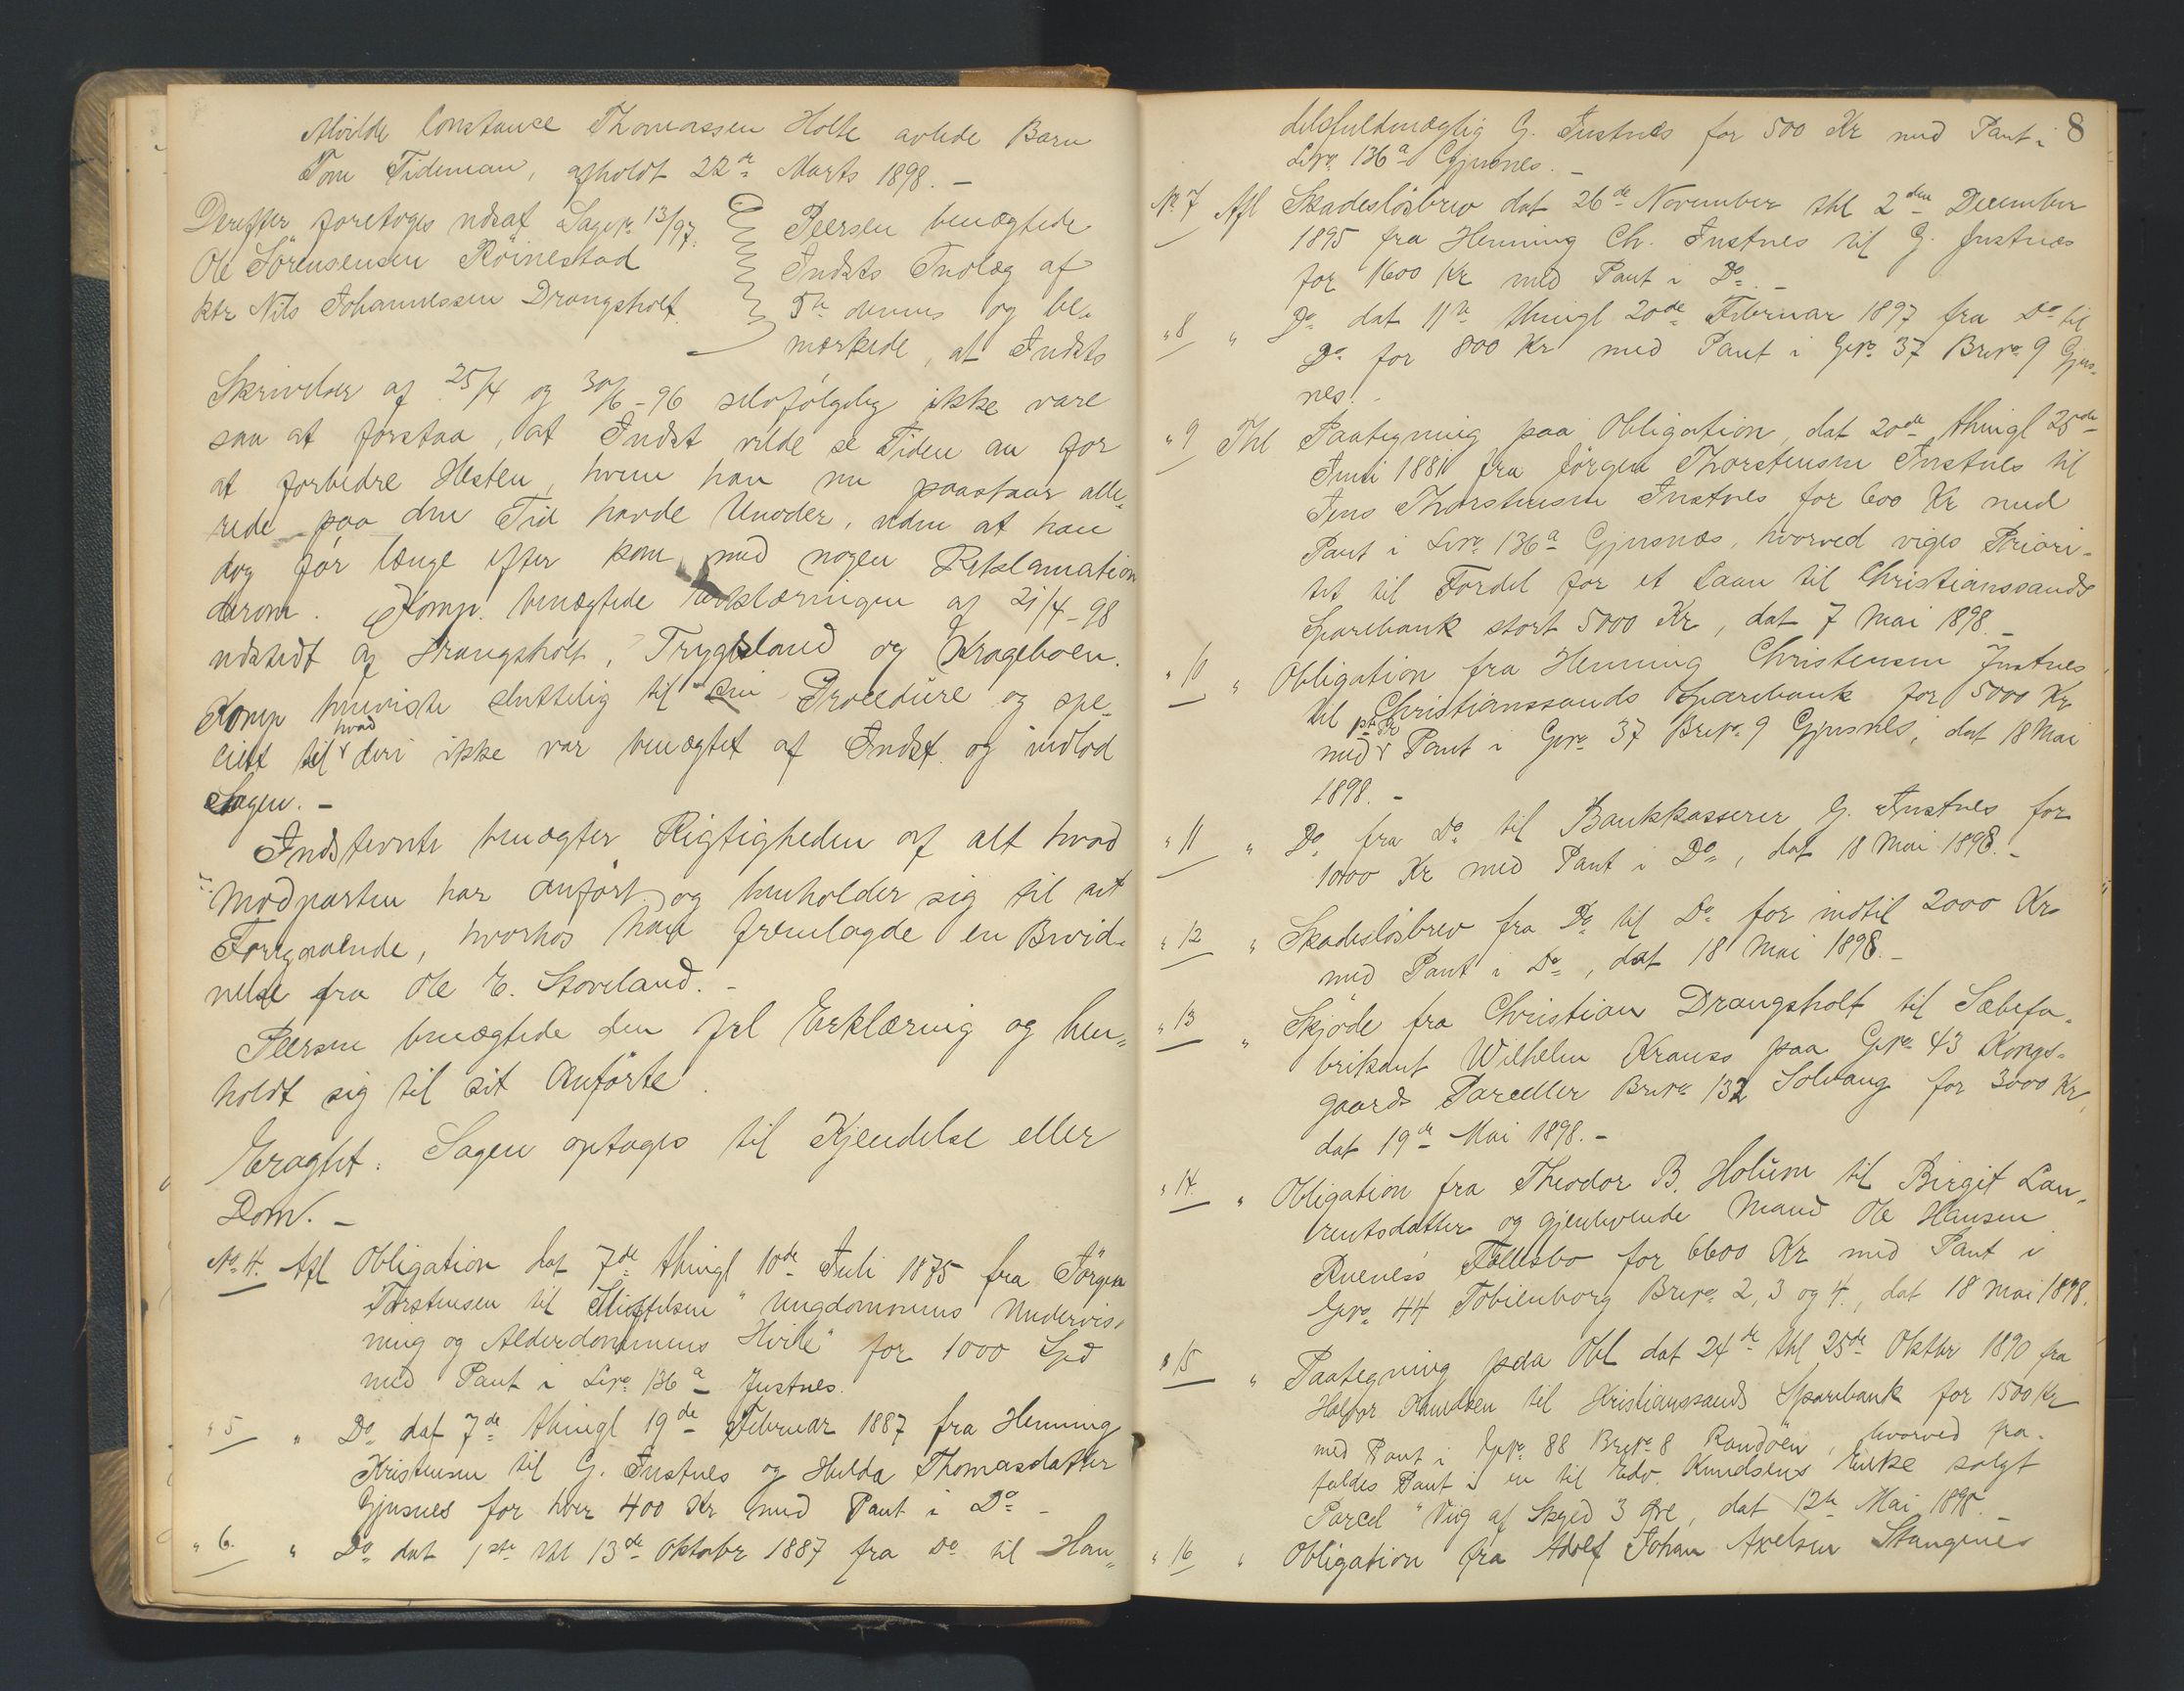 Alvilde Constance Thomassen Holte avlede Barn
Tom Tideman, afholdt 22de Marts 1898. –
Derefter foretoges udsat Sag No 13/97.
Ole Sörensensen Röinestad
ktr Nils Johannessen Drangsholt.
Peersen benægtede
Indsts Indlæg af
5te dennes og be-
mærkede, at Indsts
Skrivelser af 25/4 og 30/6-96 selvfölgelig ikke vare
saa at forstaa, at Indst vilde se Tiden an for
at forbedre Hesten, hvem han nu paastaar alle-
rede paa den Tid havde Unoder, uden at han
dog för længe efter kom med nogen Reklamation
derom. Komp. benægtede Erklæringen af 21/4-98
udstedt af Drangsholt, Trygsland og Krageboen.
Komp henviste sluttelig til sin Procedüre og spe-
cielt til hvad deri ikke var benægtet af Indst. og indlod
Sagen. –
Indstevnte benægter Rigtigheden af alt hvad
Modparten har anført og henholder sig til sit
Foregaaende, hvorhos han fremlagde en Bevid-
nelse fra Ole E. Stoveland. –
Peersen benægtede den frl Erklæring og hen-
holdt sig til sit Anförte.
Eragtet: Sagen optages til Kjendelse eller
Dom. –
No 4. Afl Obligation dat 7de thingl 10de Juli 1875 fra Jörgen
Torstensen til Stiftelsen "Ungdommens Undervis-
ning og Alderdommens Hvile" for 1000 Spd
med Pant i Lno 136a Justnes.
" 5 " Do dat 7de thingl 19de Februar 1887 fra Henning
Kristensen til G. Justnes og Hulda Thomasdatter
Gjusnes for hver 400 Kr med Pant i Do –
" 6. " Do dat 1ste thl 13de Oktober 1887 fra Do til Han-
8
delsfuldmægtig G. Justnes for 500 Kr med Pant i
Lno 136a Gjusnes. –
No 7 Afl Skadeslösbrev dat 26de November thl 2den December
1895 fra Henning Ch. Justnes til G. Justnes
for 1600 Kr med Pant i Do. –
" 8 " Do dat 11te thingl 20de Februar 1897 fra Do til
Do for 800 Kr med Pant i Gno 37 Brno 9 Gjus-
nes. –
" 9 Thl Paategning paa Obligation, dat 20de thingl 25de
Juni 1881 fra Jörgen Thorstensen Justnes til
Jens Thorstensen Justnes for 600 Kr med
Pant i Lno 136a Gjusnæs, hvorved viges Priori-
tet til Fordel for et Laan til Christianssands
Sparebank stort 5000 Kr, dat 7 Mai 1898. –
" 10 " Obligation fra Henning Christensen Justnes
til Christianssands Sparebank for 5000 Kr
med Pant i Gno 37 Brno 9 Gjusnes, dat 18 Mai
1898. –
" 11 " Do fra Do til Bankkasserer G. Justnes for
1000 Kr med Pant i Do, dat 18 Mai 1898. –
" 12 " Skadeslösbrev fra Do til Do for indtil 2000 Kr
med Pant i Do, dat 18 Mai 1898. –
" 13 " Skjöde fra Christian Drangsholt til Sæbefa-
brikant Wilhelm Krauss paa Gno 43 Kongs-
gaards Parceller Brno 132 Solvang for 3000 Kr,
dat 19de Mai 1898. –
" 14. " Obligation fra Theodor B. Holüm til Birgit Lau-
rentsdatter og gjenlevende Mand Ole Hansen
Fællesbo for 6600 Kr med Pant i
Gno 44 Tobienborg Brno 2, 3 og 4., dat 18 Mai 1898.
" 15 " Paategning paa Obl dat 24de thl 25de Oktbr 1890 fra
Halvor Knudsen til Kristianssands Sparebank for 1500 Kr
med Pant i Gno 88 Brno 8 Randöen, hvorved fra-
faldes Pant i en til Edv. Knudsens Enke solgt
Parcel "Vig af Skyld 3 Øre, dat 12te Mai 1898. –
" 16 " Obligation fra Adolf Johan Axelsen Stangenes